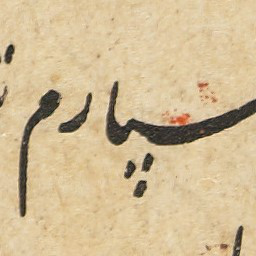 سپارم